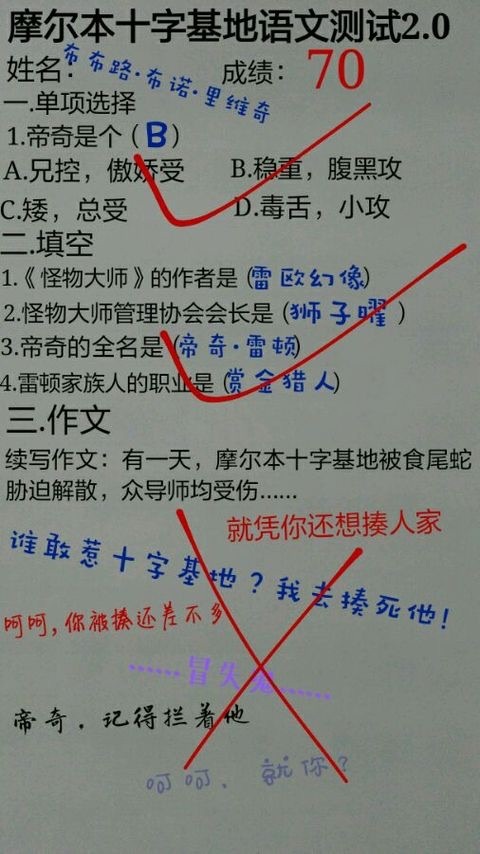 摩尔本十字基地语文测试2.0
姓名：布布路·布诺·里维奇 成绩：70
一.单项选择
1.帝奇是个（B）
A.兄控，傲娇受 B.稳重，腹黑攻
C.矮，总受 D.毒舌，小攻
二.填空
1.《怪物大师》的作者是（雷欧幻像）
2.怪物大师管理协会会长是（狮子曜）
3.帝奇的全名是（帝奇·雷顿）
4.雷顿家族人的职业是（赏金猎人）
三.作文
续写作文：有一天，摩尔本十字基地被食尾蛇
胁迫解散，众导师均受伤……
就凭你还想揍人家
谁敢惹十字基地？我去揍死他！
呵呵，你被揍还差不多
……冒失鬼……
帝奇．记得拦着他
呵呵．就你？